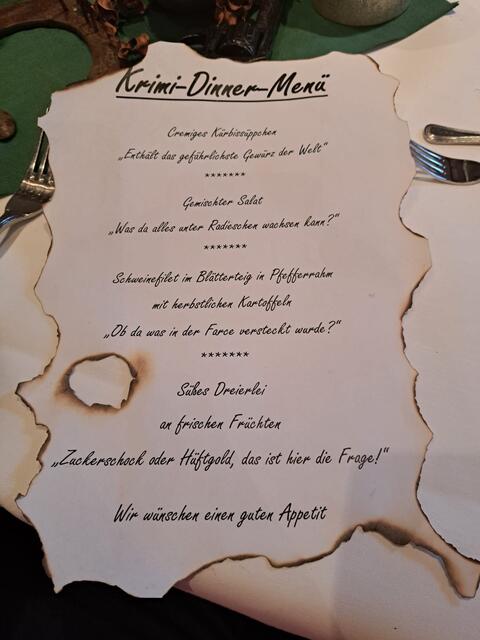 Krimi-Dinner-Menü
Cremiges Kürbissüppchen
„Enthält das gefährlichste Gewürz der Welt“
*******
Gemischter Salat
„Was da alles unter Radieschen wachsen kann?“
*******
Schweinefilet im Blätterteig in Pfefferrahm
mit herbstlichen Kartoffeln
„Ob da was in der Farce versteckt wurde?“
*******
Süßes Dreierlei
an frischen Früchten
„Zuckerschock oder Hüftgold, das ist hier die Frage!“
Wir wünschen einen guten Appetit